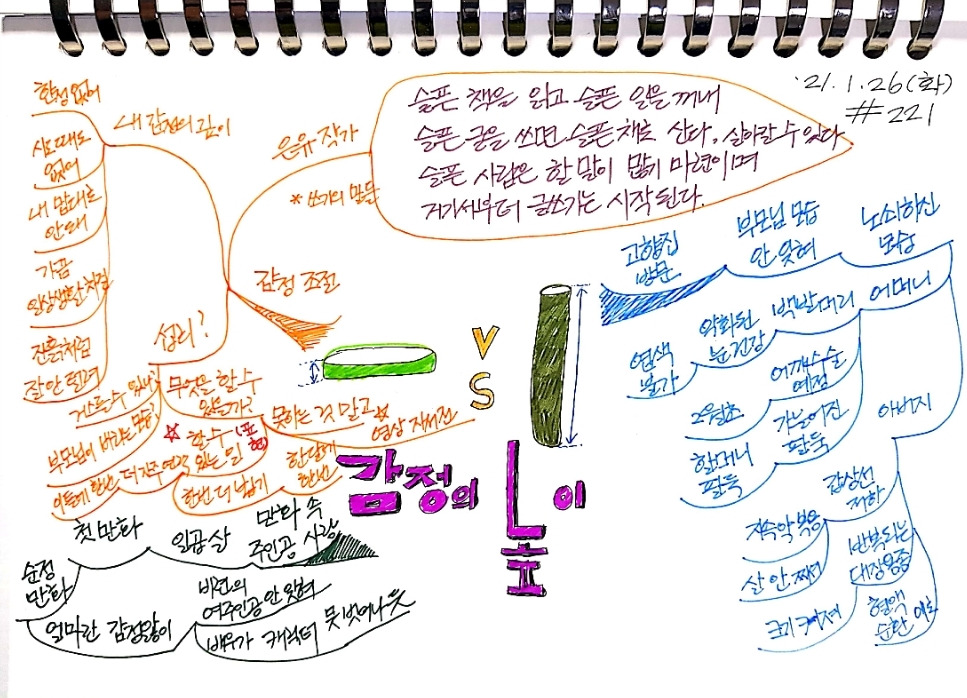 '21. 1. 26 (화)
#221
슬픈 책을 읽고 슬픈 일을 꺼내
슬픈 글을 쓰면 슬픈 채로 산다. 살아갈 수 있다
슬픈 사람은 할 말이 많기 마련이며
거기서부터 글쓰기는 시작된다.
은유 작가
* 쓰기의 말들
내 감정의 깊이
한정 없어
시도 때도
없어
내 맘대로
안 돼
가끔
일상생활처럼
진흙처럼
잘 안 떨려
감정 조절
섭리?
거스를 수 있나?
부모님이 버리는 모습?
무엇을 할 수
있을까?
할 수 (표현)
있는 일
못하는 것 말고
영상 재서전
이틀에 한번 더 자주 연락
한번 더 넘게
한달에
한번
V
S
감정의 높이
고향집
방문
부모님 모습
안 잊혀
노쇠하신
모습
어머니
백발 머리
약화된
눈 건강
염색
불가
어깨수술
예정
2월 말초
가늘어진
팔뚝
할머니
팔뚝
아버지
갑상선
저하
지속 약 복용
살 안 쪄서
반복되는
대장용종
크기 커져
혈액
순환 애로
만화 속
주인공 사랑
일공살
첫 만화
순정
만화
얼마란 감정앓이
비련의
여주인공 안 잊혀
배우가 캐릭터 못 벗어나듯